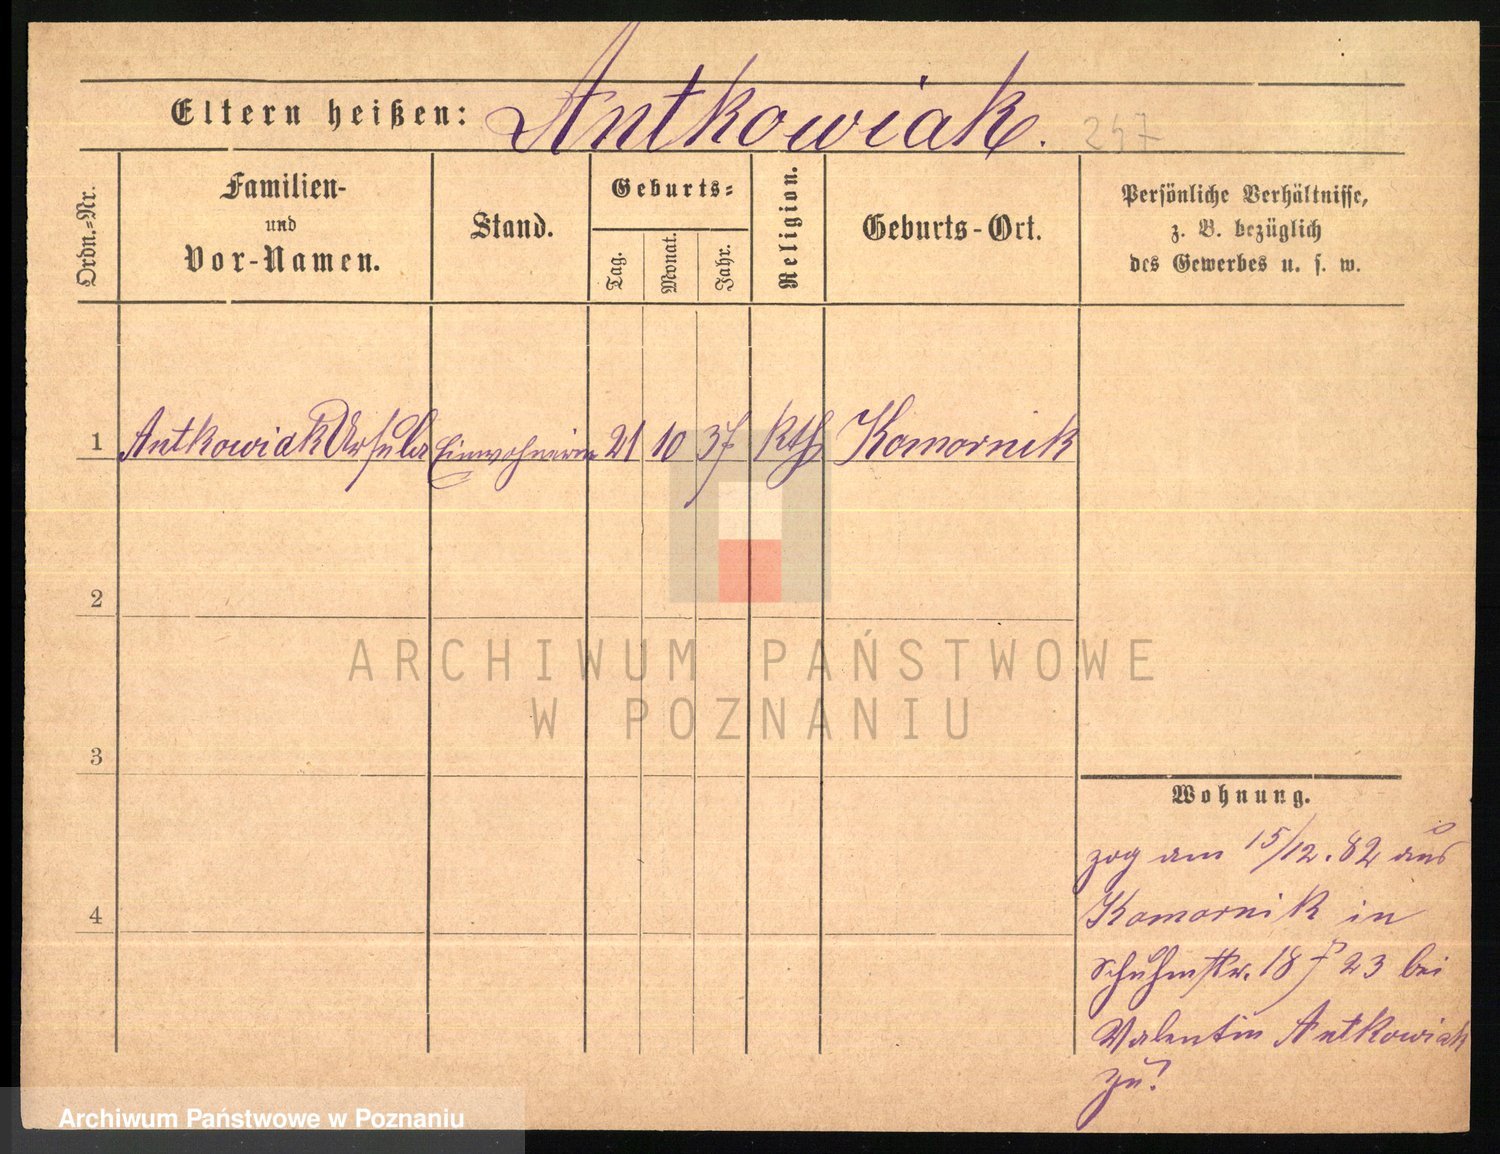 Eltern heißen: Antkowiak. 247
Ordn.-Nr.
Familien-
und
Vor-Namen.
Stand.
Geburts-
Tag.
Monat.
Jahr.
Religion.
Geburts-Ort.
Persönliche Verhältnisse,
z. B. bezüglich
des Gewerbes u. s. w.
1 Antkowiak Ursula Einwohnerin 21 10 37 kth Komornik
2
3
4
Wohnung.
zog am 15/12. 82 aus
Komornik in
Schuhmstr. 18 23 bei
Valentin Antkowiak
zu!
ARCHIWUM PAŃSTWOWE
W POZNANIU
Archiwum Państwowe w Poznaniu